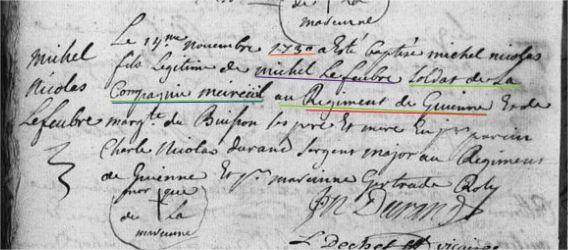 de la
mareinne
Michel
Nicolas
Lefeubre
Le 14me novembre 1730 a Esté baptisé michel nicolas
fils legitime de michel Lefeubre soldat de La
Compagnie mireüil au Regiment de Guienne Et de
margte du Buisson ses pere Et mere Eu pr parein
Charle Nicolas durand sergent major au Regiment
de Guienne Et pr mareinne Gertrude Roly
marque
de la
mareinne
JN Durand
L. Dechet vicaire